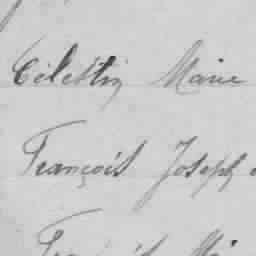 Célestin Marie
François Joseph